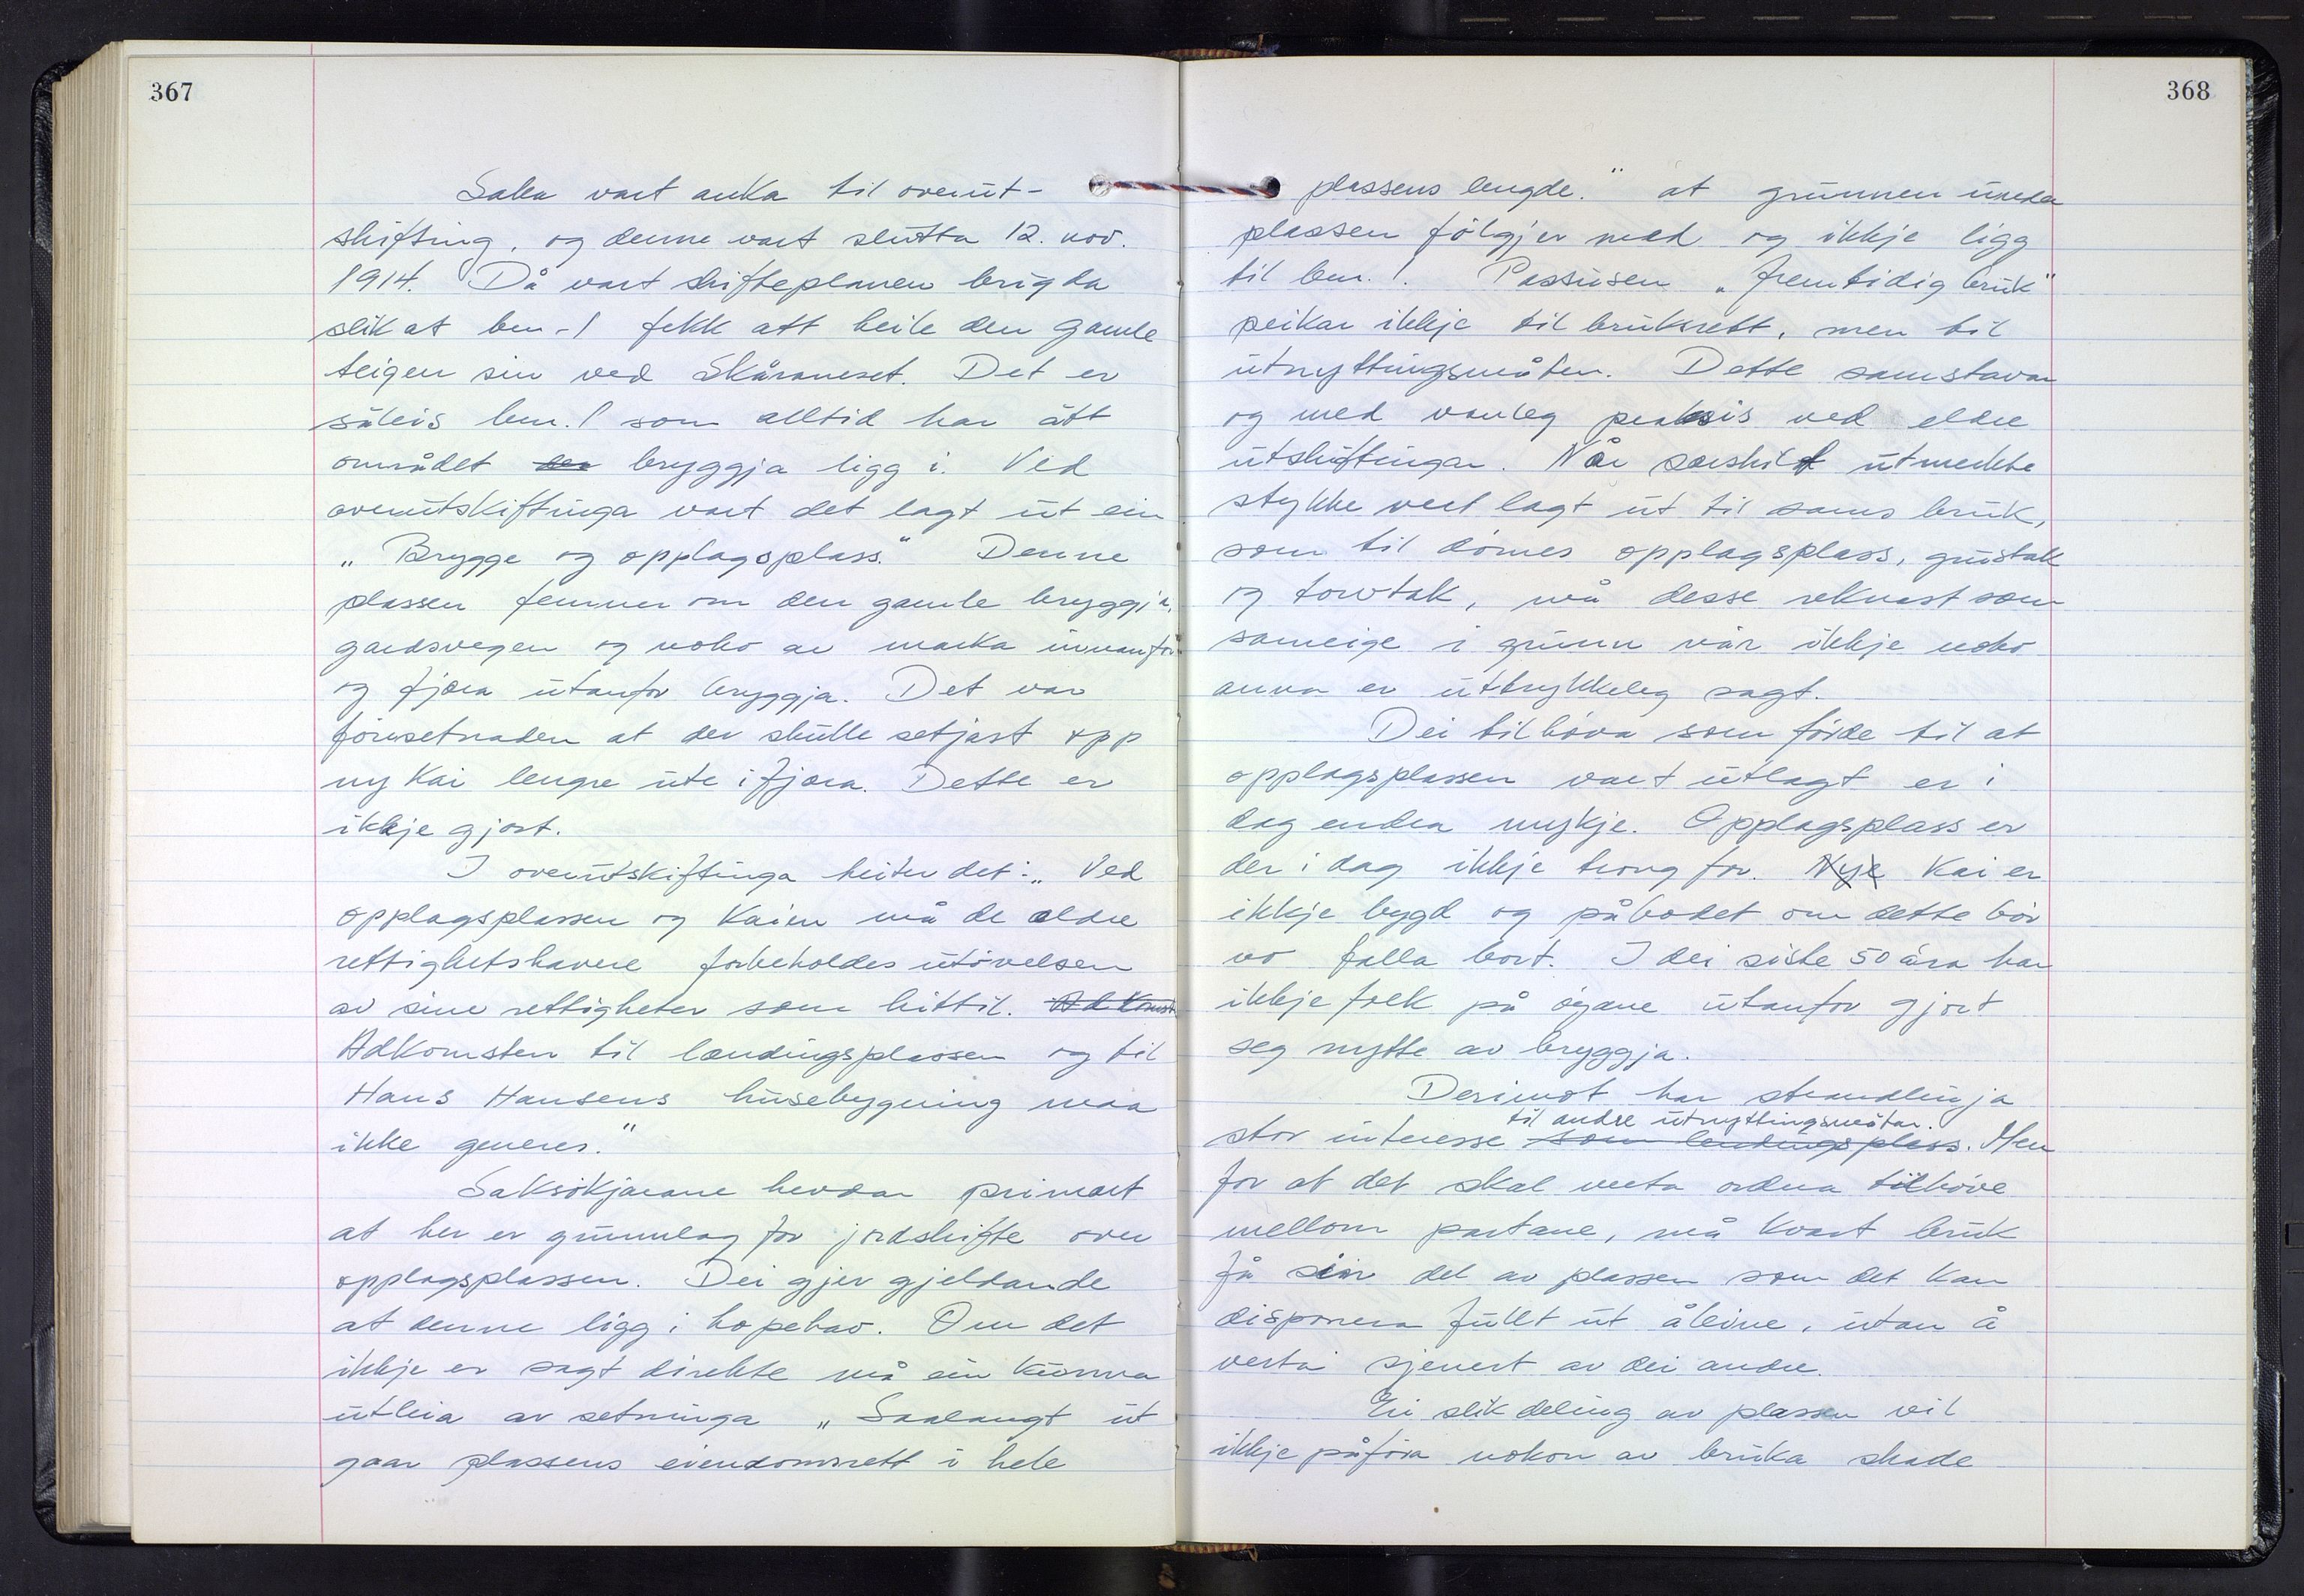 367
Saka vart anka til overut-
skifting, og denne vart slutta 12. nov.
1914. Då vart skifteplanen brigda
slik at bnr. 1 fekk att heile den gamle
teigen sin ved Skåraneset. Det er
såleis bnr. 1 som alltid har ått
området der bryggja ligg i. Ved
overutskiftinga vart det lagt ut ein
„Brygge og opplagsplass." Denne
plassen femner om den gamle bryggja,
gardsvegen og noko av marka innanfor
og fjæra utanfor bryggja. Det var
føresetnaden at der skulle setjast opp
ny kai lengre ute i fjæra. Dette er
ikkje gjort.
I overutskiftinga heiter det: „Ved
opplagsplassen og kaien må de eldre
rettighetshavere forbeholdes utövelsen
av sine rettigheter som hittil. Adkomst
Adkomsten til landingsplassen og til
Hans Hansens husebygning maa
ikke generes."
Saksökjarane hevdar primært
at her er grunnlag for jordskifte over
opplagsplassen. Dei gjer gjeldande
at denne ligg i hopehav. Om det
ikkje er sagt direkte må ein kunna
utleia av setninga „Saalangt ut
gaar plassens eiendomsrett i hele
368
plassens lengde." at grunnen under
plassen fölgjer med og ikkje ligg
til bnr. 1. Passusen „fremtidig bruk"
peikar ikkje til bruksrett, men til
utnyttingsmåten. Dette samstavar
og med vanleg praksis ved eldre
utskiftingar. Når særskilt utmerkte
stykke vert lagt ut til sams bruk,
som til dömes opplagsplass, grustak
og torvtak, må desse reknast som
sameige i grunn når ikkje noko
anna er uttrykkeleg sagt.
Dei tilhöva som förde til at
opplagsplassen vart utlagt er i
dag endra mykje. Opplagsplass er
der i dag ikkje trong for. Nye Kai er
ikkje bygd og påbodet om dette bör
no falla bort. I dei siste 50 åra har
ikkje folk på öyane utanfor gjort
seg nytte av bryggja.
Derimot har strandlinja
til andre utnyttingsmåtar.
stor interesse som landingsplass. Men
for at det skal verta ordna tilhöve
mellom partane, må kvart bruk
få sin del av plassen som det kan
disponera fullt ut åleine, utan å
verta sjenert av dei andre.
Ei slik deling av plassen vil
ikkje påföra nokon av bruka skade